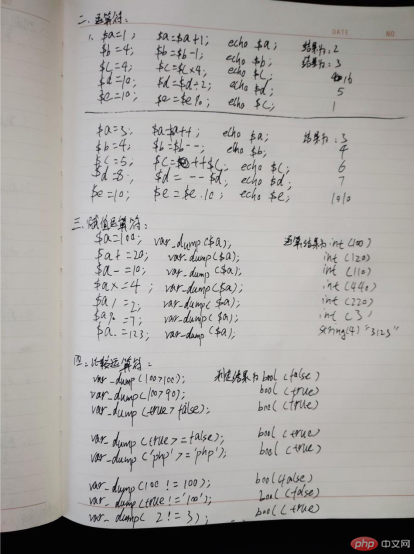 二.运算符:
1. $a=1; $a=$a+1; echo $a; 结果为:2
$b=4; $b=$b-1; echo $b; 结果为:3
$c=4; $c=$c×4; echo $c; 16
$d=10; $d=$d÷2; echo $d; 5
$e=10; $e=$e%; echo $c; 1
$a=3; $a=$a++; echo $a; 结果为:3
$b=4; $b=$b--; echo $b; 4
$c=5; $c=++$c; echo $c; 6
$d=8; $d= --$d; echo $d; 7
$e=10; $e=$e.10; echo $e; 1010
三.赋值运算符:
$a=100; var_dump($a); 运算结果为int(100)
$a+=20; var_dump($a); int(120)
$a-=10; var_dump($a); int(110)
$a×=4; var_dump($a); int(440)
$a/=2; var_dump($a); int(220)
$a%=7; var_dump($a); int(3)
$a.=123; var_dump($a); string(4) "3123"
四.比较运算符:
var_dump(100>100); 结果为bool(false)
var_dump(100>90); bool(true)
var_dump(true>false); bool(true)
var_dump(true>=false); bool(true)
var_dump('php'>='php'); bool(true)
var_dump(100!=100); bool(false)
var_dump(true!='100'); bool(false)
var_dump(2!=3); bool(true)
php 中文网